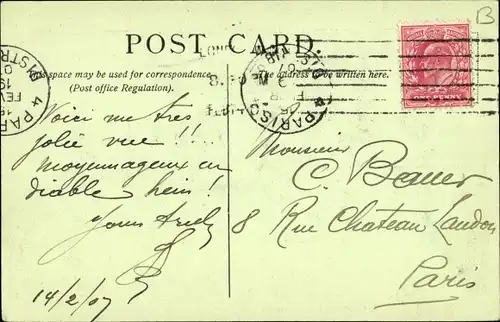 B
POST CARD
This space may be used for correspondence
(Post office Regulation).
The address to be written here.
ONE PENNY
PARIS
Voici une très
jolie vue !!...
Moyennageux au
diable hein!
Yours truly
14/2/07
Monsieur
C. Bauer
8 Rue Chateau Landon
Paris